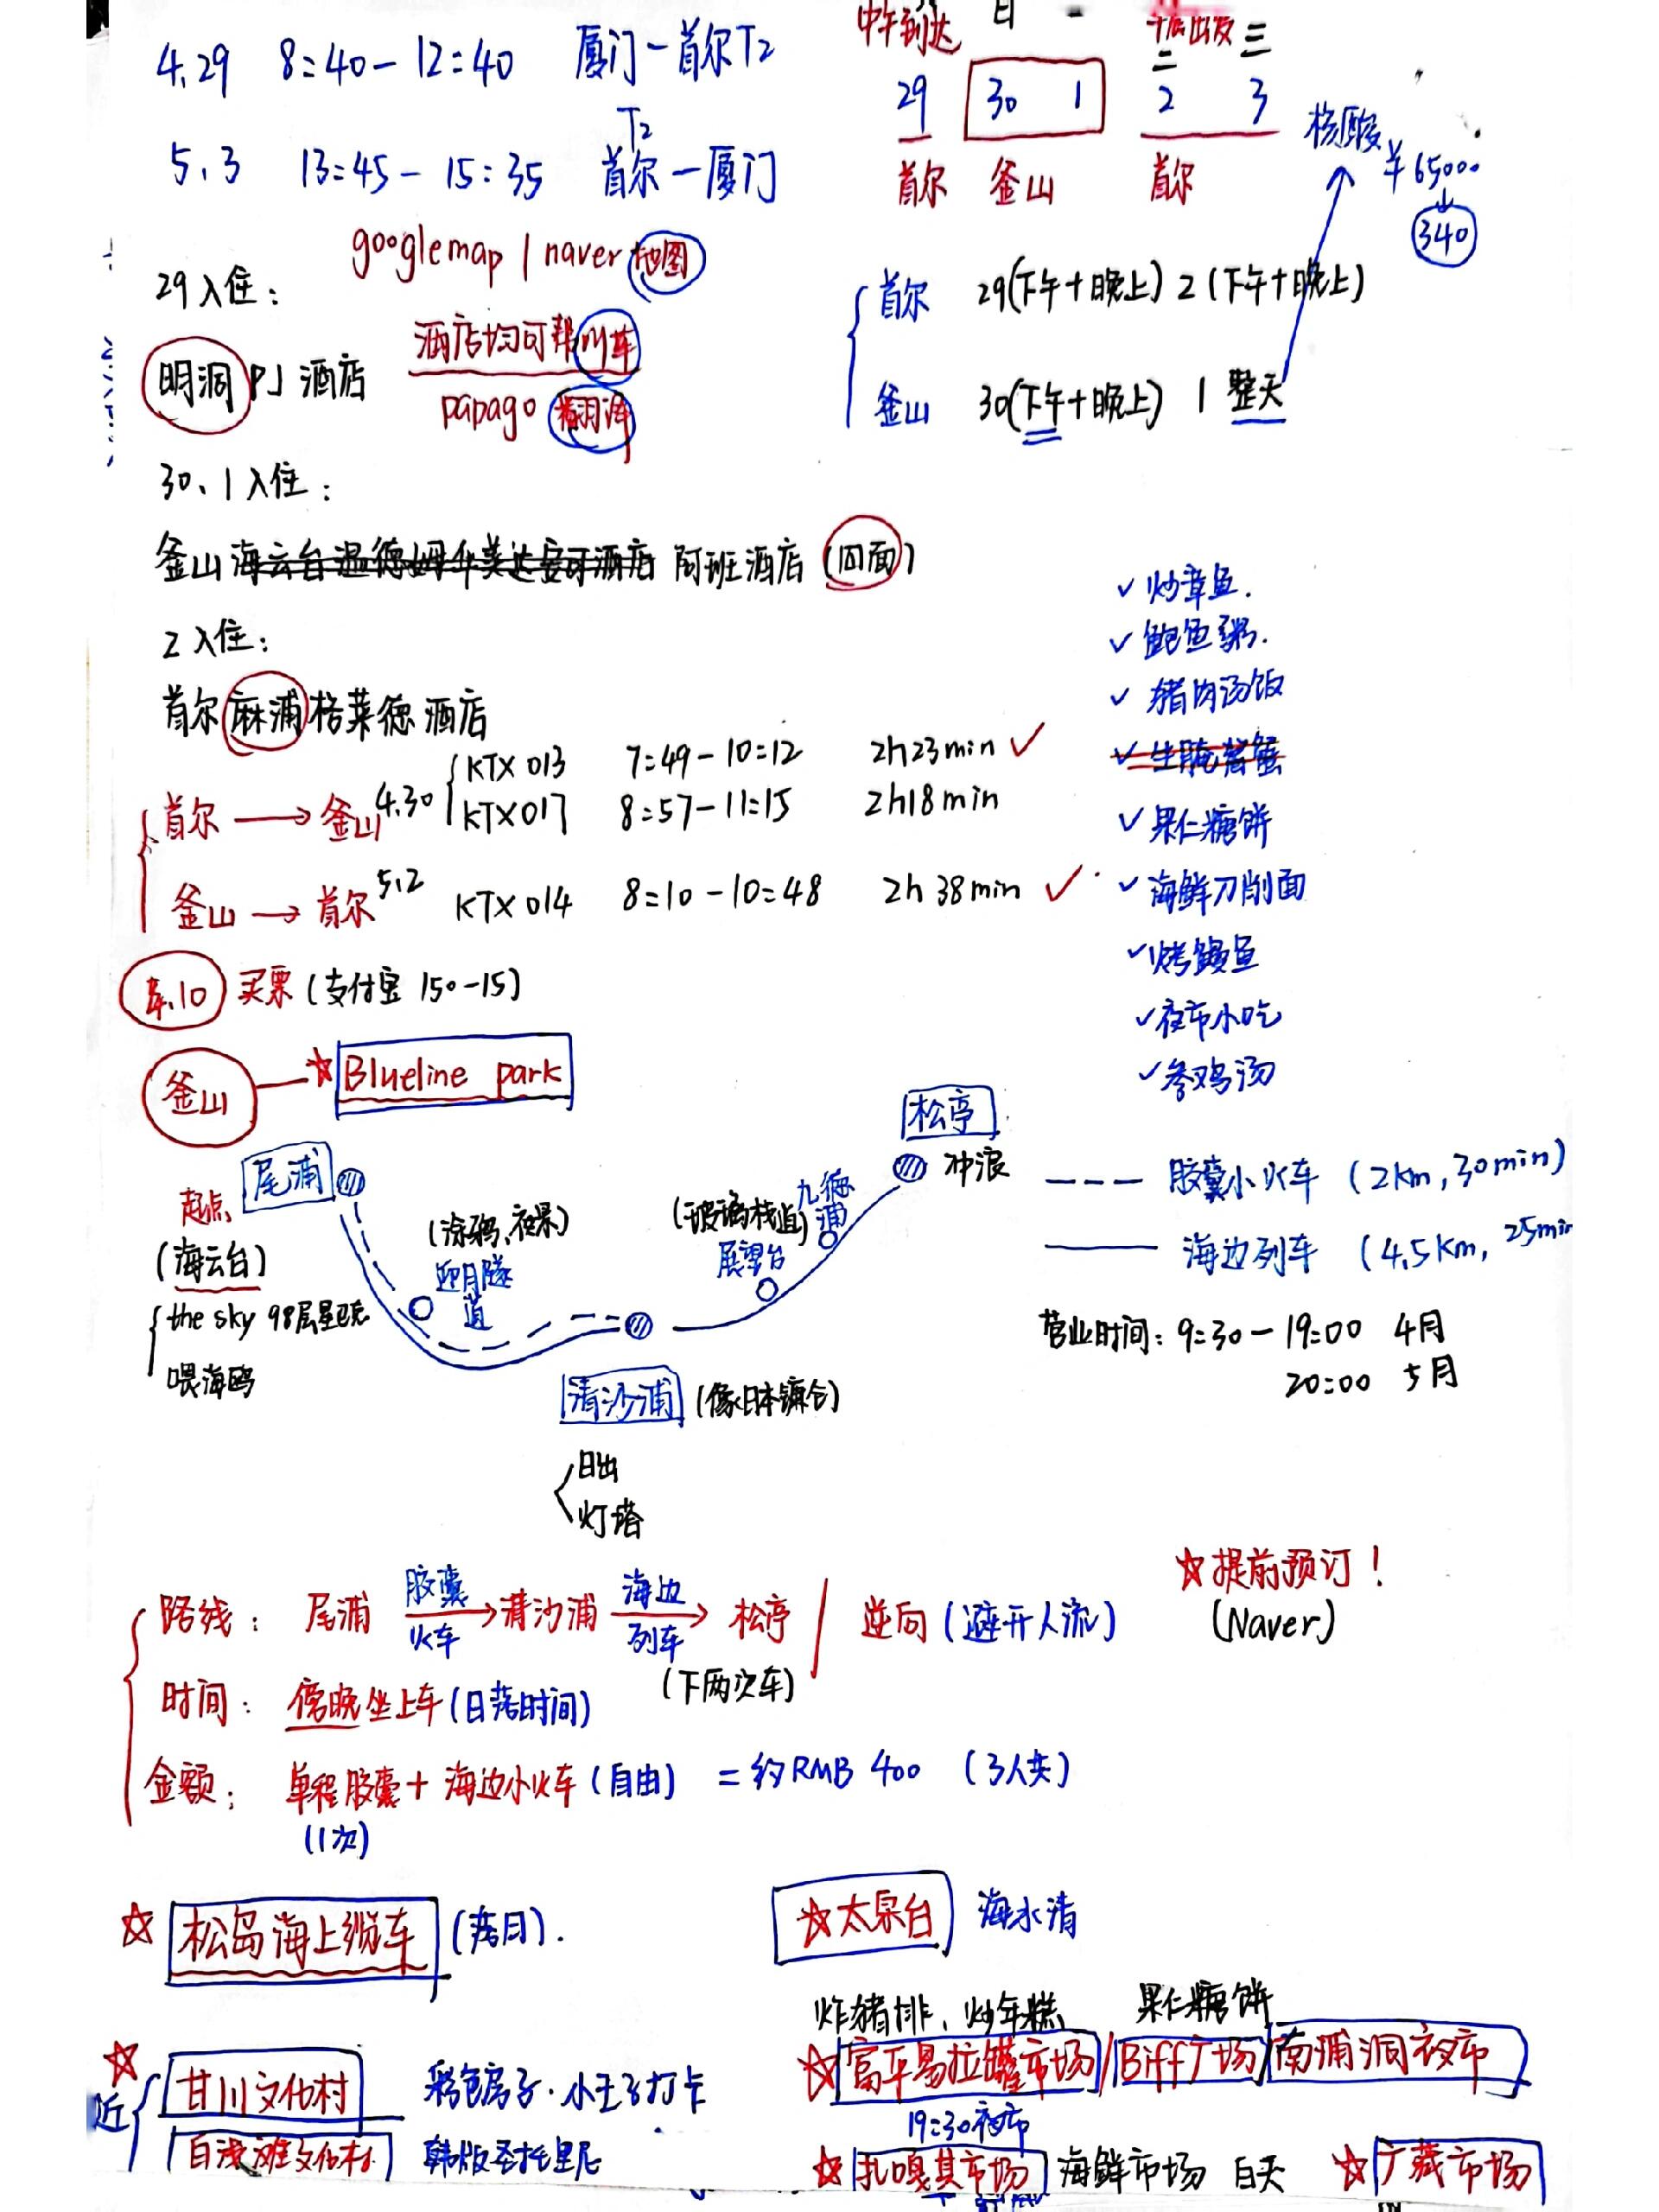 4.29 8:40-12:40 厦门-首尔T2
中午到达 日 二 三
29 30 1 2 3
首尔 釜山 首尔
核酸 ¥65000
340
T2
5.3 13:45-15:35 首尔-厦门
googlemap / naver 地图
29入住:
酒店均可帮叫车
明洞PJ酒店
papago 翻译
首尔 29(下午+晚上) 2(下午+晚上)
釜山 30(下午+晚上) 1 整天
30、1入住:
釜山海云台温德姆华美达安可酒店 阿班酒店(回面)
2入住:
首尔麻浦格莱德酒店
首尔→釜山 4.30 KTX 013 7:49-10:12 2h23min ✓
KTX 017 8:57-11:15 2h18min
釜山→首尔 5.2 KTX 014 8:10-10:48 2h38min ✓
✓炒章鱼.
✓鲍鱼粥.
✓猪肉汤饭
✓生腌酱蟹
✓果仁糖饼
✓海鲜刀削面
✓烤鳗鱼
✓夜市小吃
✓参鸡汤
4.10 买票(支付宝 150-15)
釜山 ☆Blueline park
尾浦
起点
(海云台)
the sky 98层星巴克
喂海鸥
(涂鸦,夜景)
迎月隧道
(玻璃栈道)
展望台
九德浦
松亭
冲浪
清沙浦 (像日本镰仓)
日出
灯塔
--- 胶囊小火车 (2km,30min)
—— 海边列车 (4.5km, 25min
营业时间: 9:30-19:00 4月
20:00 5月
☆提前预订!
(Naver)
路线: 尾浦 胶囊火车→清沙浦 海边列车→松亭 / 逆向(避开人流)
(下两次车)
时间: 傍晚坐上车(日落时间)
金额: 单程胶囊+海边小火车(自由) =约RMB 400 (3人共)
(1次)
☆松岛海上缆车 (落日).
☆太宗台 海水清
炸猪排、炒年糕 果仁糖饼
☆富平易拉罐市场/Biff广场/南浦洞夜市
19:30夜市
☆近 甘川文化村 彩色房子·小王子打卡
白浅滩文化村 韩版圣托里尼
☆扎嘎其市场 海鲜市场 白天 ☆广藏市场